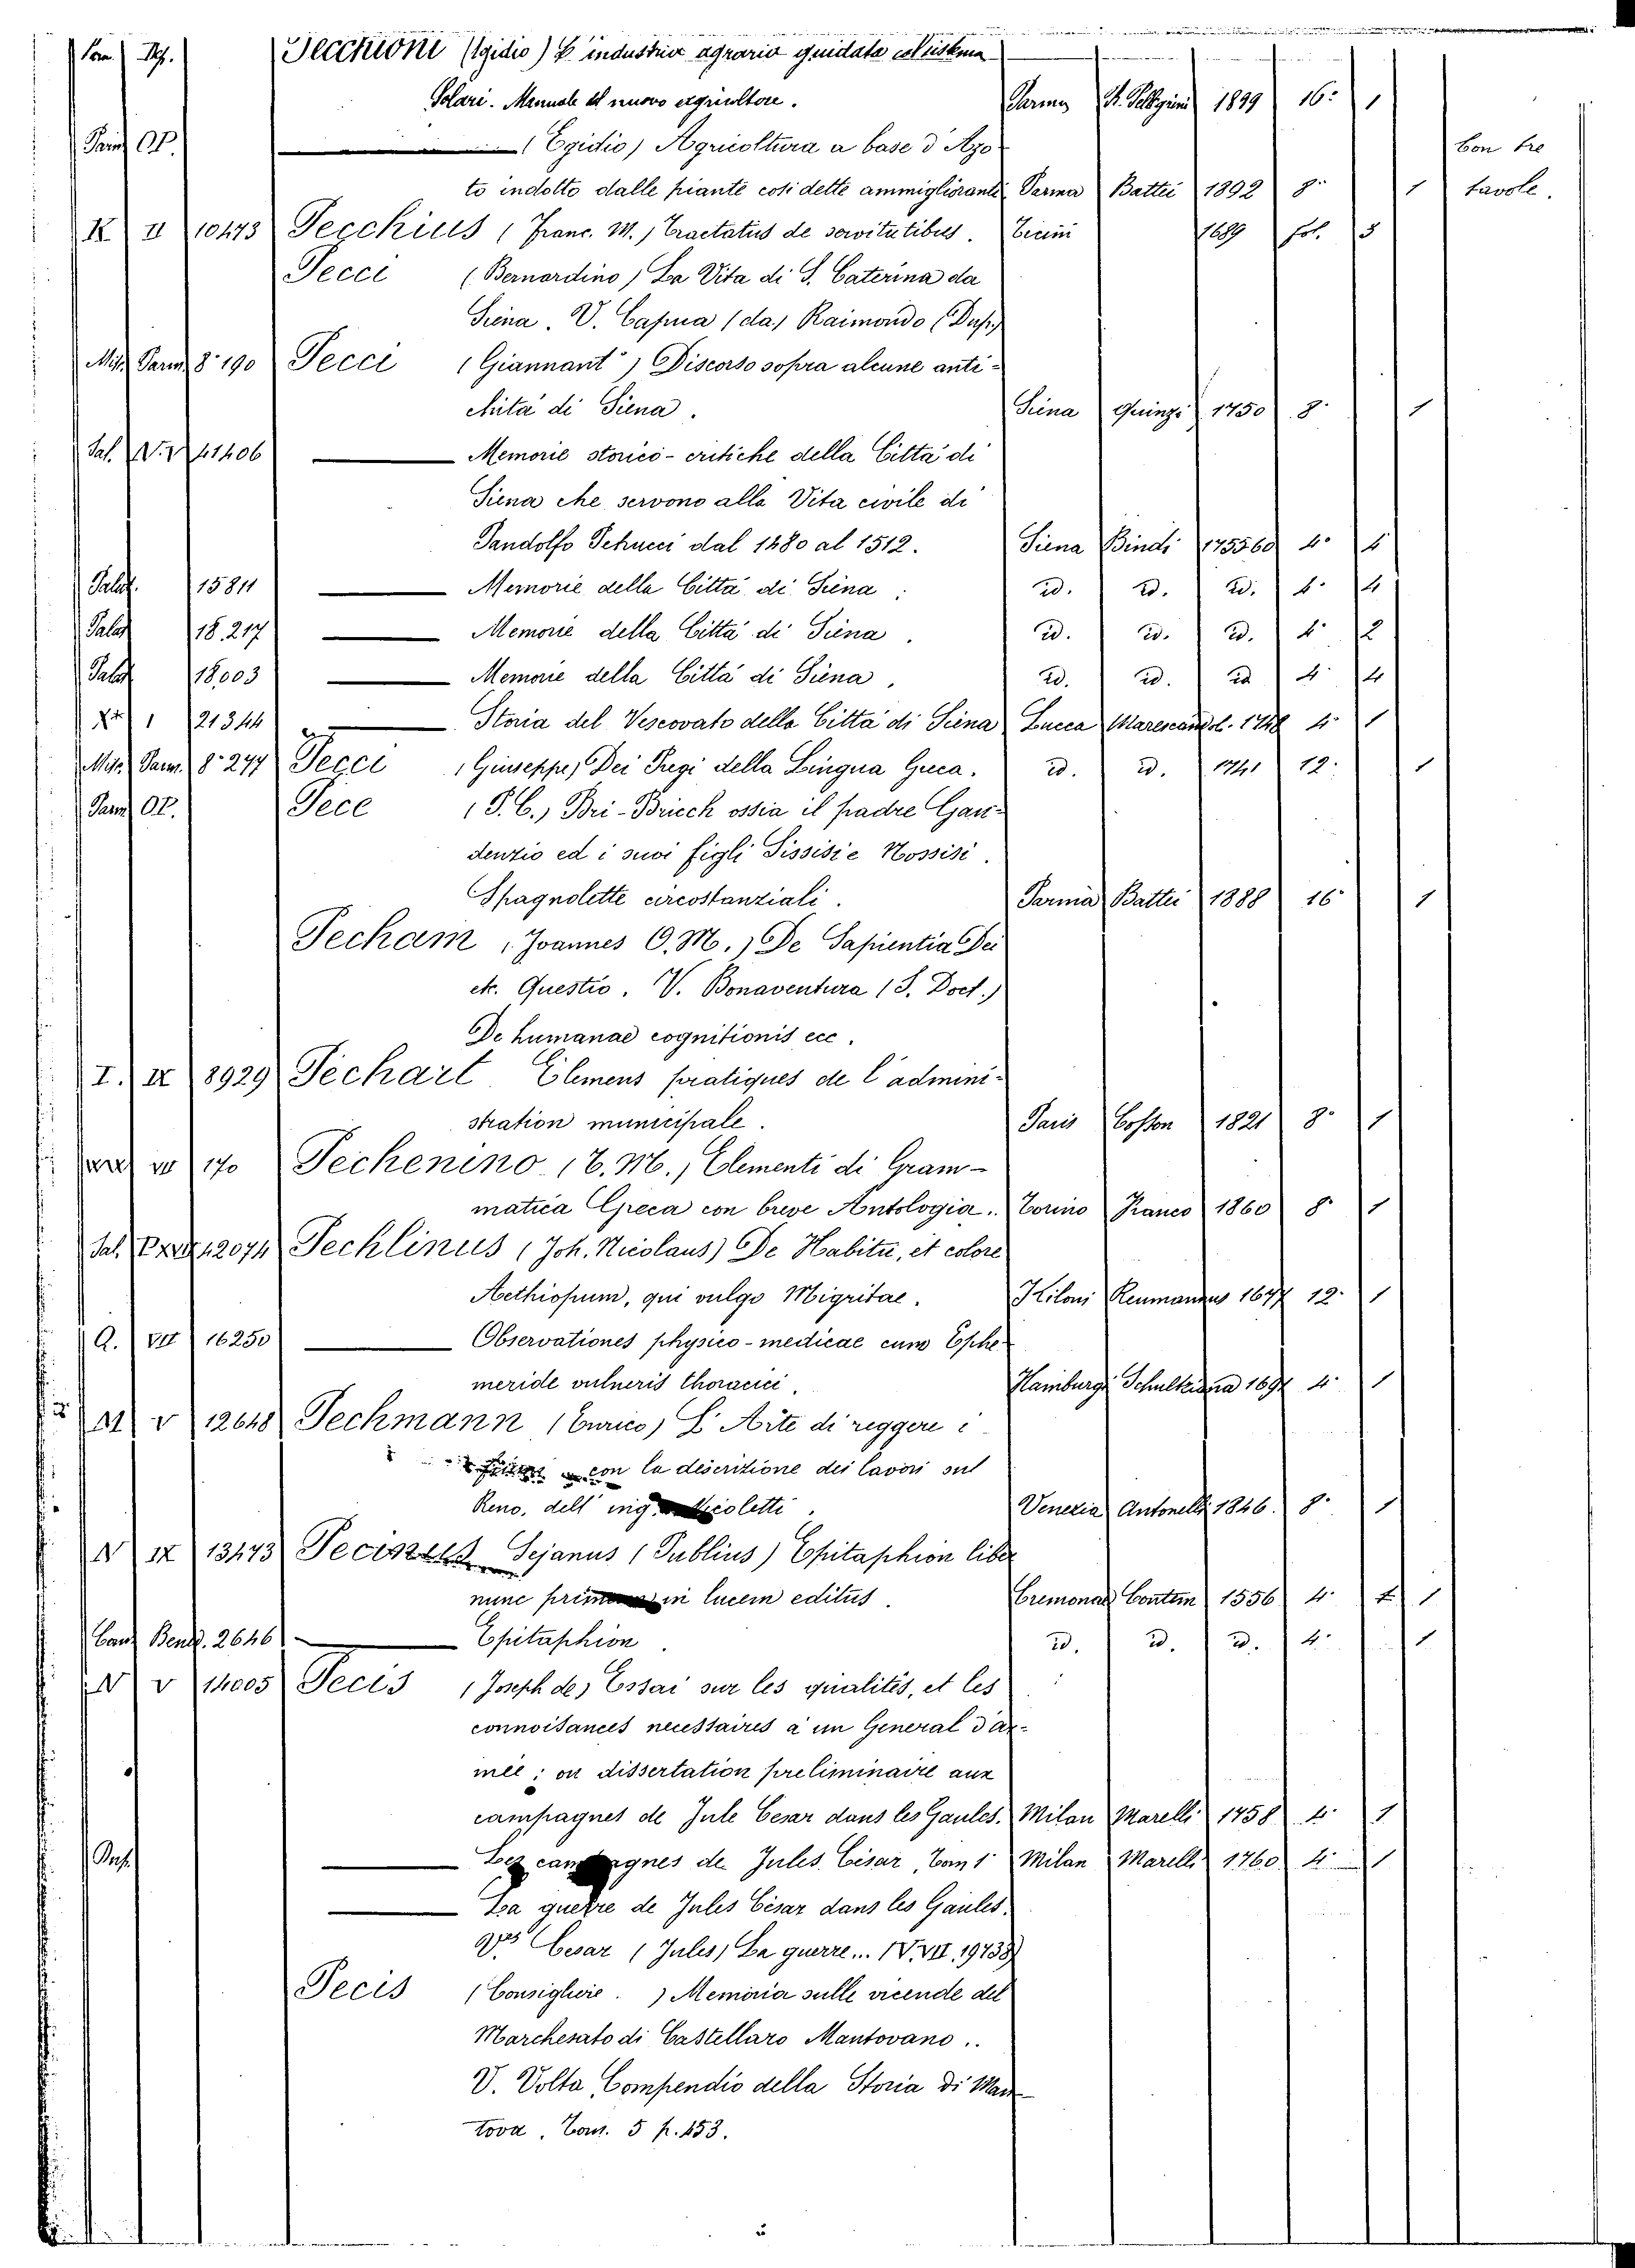 Pecchioni (Egidio) L'industria agraria guidata col sistema
Solari. Manuale del nuovo agricoltore. Parma 1899 16° 1
Parm. OP. (Egidio) Agricoltura a base d'Azo Con tre
to indotto dalle piante cosi dette ammiglioranti Parma Battei 1892 8° 1 tavole.
K II 10473 Pecchius (Franc. M.) Tractatus de servitutibus. Ticini 1689 fol. 5
Pecci (Bernardino) La Vita di S. Caterina da
Siena. V. Capua (da) Raimondo (Dup.)
Misc. Parm. 8° 190 Pecci (Giannant°) Discorso sopra alcune anti-
chità di Siena. Siena Quinza 1750 8° 1
Pal. 41406 Memorie storico-critiche della Città di
Siena che servono alla Vita civile di
Pandolfo Petrucci dal 1480 al 1512. Siena Bindi 175560 4° 4
Palat. 15811 Memorie della Città di Siena. id. id. id. 4° 4
Palat. 18.217 Memorie della Città di Siena. id. id. id. 4° 2
Palat. 18003 Memorie della Città di Siena. id. id. id 4° 4
1 21344 Storia del Vescovato della Città di Siena Lucca Marescandol. 1748 4° 1
Misc. Parm. 8° 247 Pecci (Giuseppe) Dei Pregi della Lingua Greca. id. id. 1741 12° 1
Parm. OP. Pece (P. C.) Bri-Bricch ossia il padre Gau-
denzio ed i suoi figli Sissisi e Nossisi.
Spagnolette circostanziali. Parma Battei 1888 16° 1
Pecham (Joannes O. M.) De Sapientia Dei
etc. Questio. V. Bonaventura (S. Doct.)
De humanae cognitionis ecc.
I. IX 8929 Pechart Elemens pratiques de l'admini-
stration municipale. Paris Cosson 1821 8° 1
170 Pechenino (C. M.) Elementi di Gram-
matica Greca con breve Antologia. Torino Franco 1860 8° 1
Pal. 12074 Pechlinus (Joh. Nicolaus) De Habitu, et colore
Aethiopum, qui vulgo Migritae. Kiloni Reumannus 1677 12° 1
Q. VII 16250 Observationes physico-medicae cum Ephe-
meride vulneris thoracici. Hamburgi Schultziana 1691 4° 1
M V 12648 Pechmann (Enrico) L'Arte di reggere i
con la descrizione dei lavori sul
Reno, dell' ing. Nicoletti. Venezia Antonelli 1846. 8° 1
N IX 13473 Sejanus (Publius) Epitaphion liber
nunc primum in lucem editus. Cremonae Contem 1556 4° 1
Epitaphion. id. id. id. 4° 1
N V 14005 Pecis (Joseph de) Essai sur les qualités, et les
connoisances necessaires a un General d'ar-
mée; ou dissertation preliminaire aux
campagnes de Jule Cesar dans les Gaules. Milan Marelli 1758 4° 1
Dup. Les campagnes de Jules César, Tom 1° Milan Marelli 1760 4° 1
La guerre de Jules César dans les Gaules.
Cesar (Jules) La guerre... (V. VII. 19738)
Pecis (Consigliere.) Memoria sulle vicende del
Marchesato di Castellaro Mantovano..
V. Volta, Compendio della Storia di Man
tova. Tom. 5 p. 453.